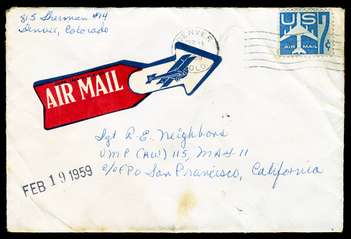 815 Sherman #14
Denver, Colorado
DENVER
COLO.
US
AIR MAIL
7¢
AIR MAIL
Sgt R.E. Neighbors
VMF (AW) 115, MAG-11
c/o FPO San Francisco, California
FEB 19 1959